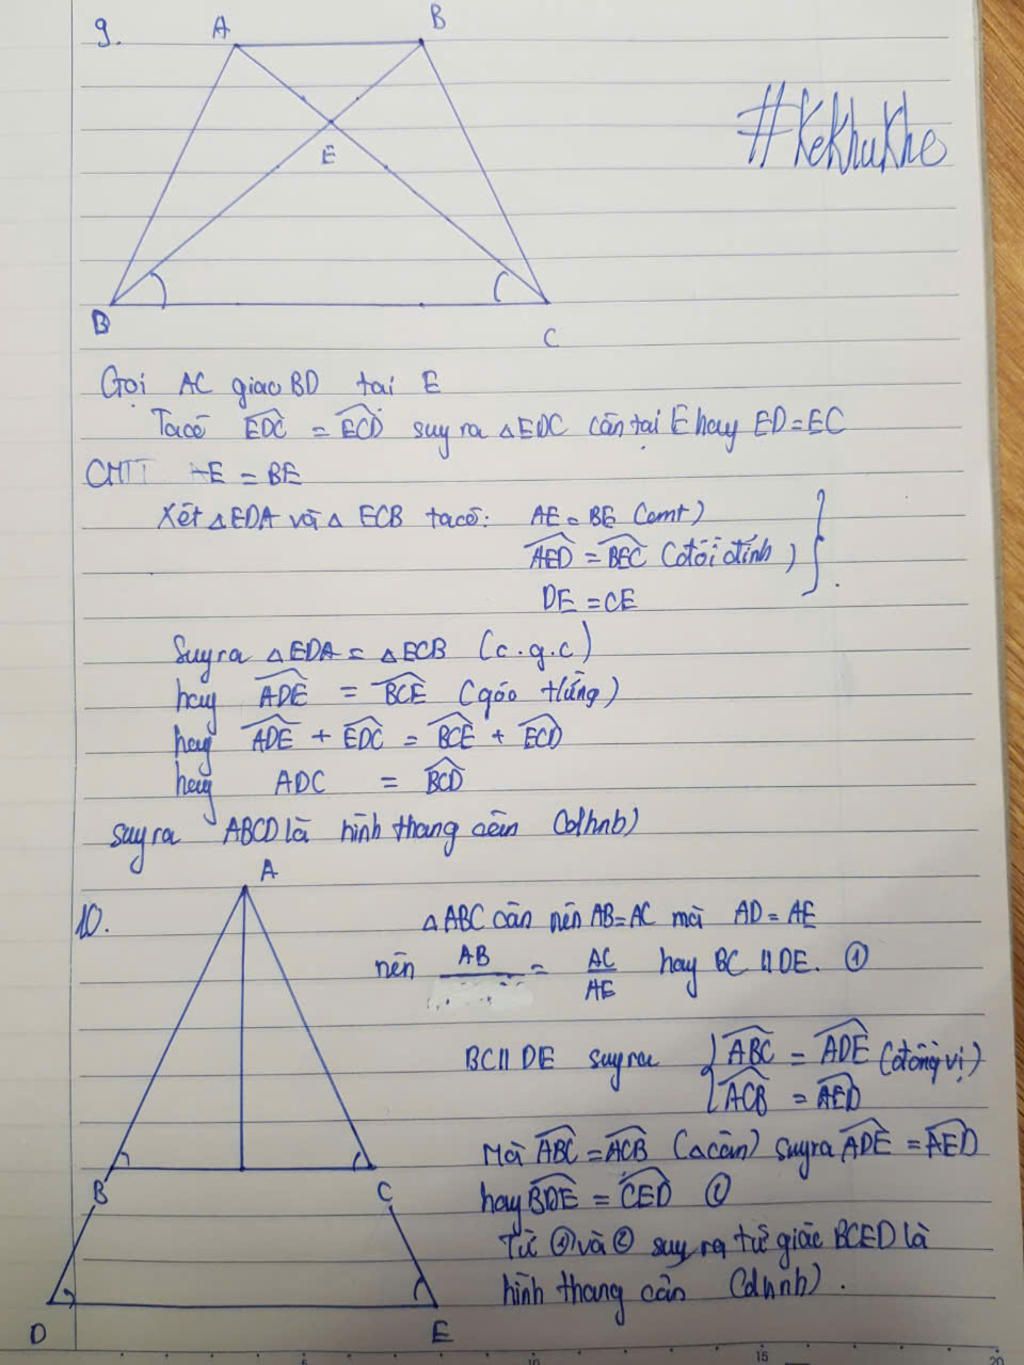 9.
A
B
#KeKhuKhe
E
B
C
Gọi AC giao BD tại E
Ta có EDC = ECD suy ra △EDC cân tại E hay ED = EC
CMTT E = BE
Xét △EDA và △ ECB ta có: AE = BE (cmt)
AED = BEC (đối đỉnh)
DE = CE
Suy ra △EDA = △ECB (c.g.c)
hay ADE = BCE (góc tứng)
hay ADE + EDC = BCE + ECD
hay ADC = BCD
suy ra ABCD là hình thang cân (dhnb)
A
10.
△ABC cân nên AB=AC mà AD = AE
nên AB = AC/AE hay BC // DE. ①
BC // DE suy ra { ABC = ADE (đồng vị)
ACB = AED
Mà ABC = ACB (△cân) suy ra ADE = AED
B
C
hay BDE = CED
Từ ① và ② suy ra tứ giác BCED là
hình thang cân (dhnb).
D
E
10
15
20